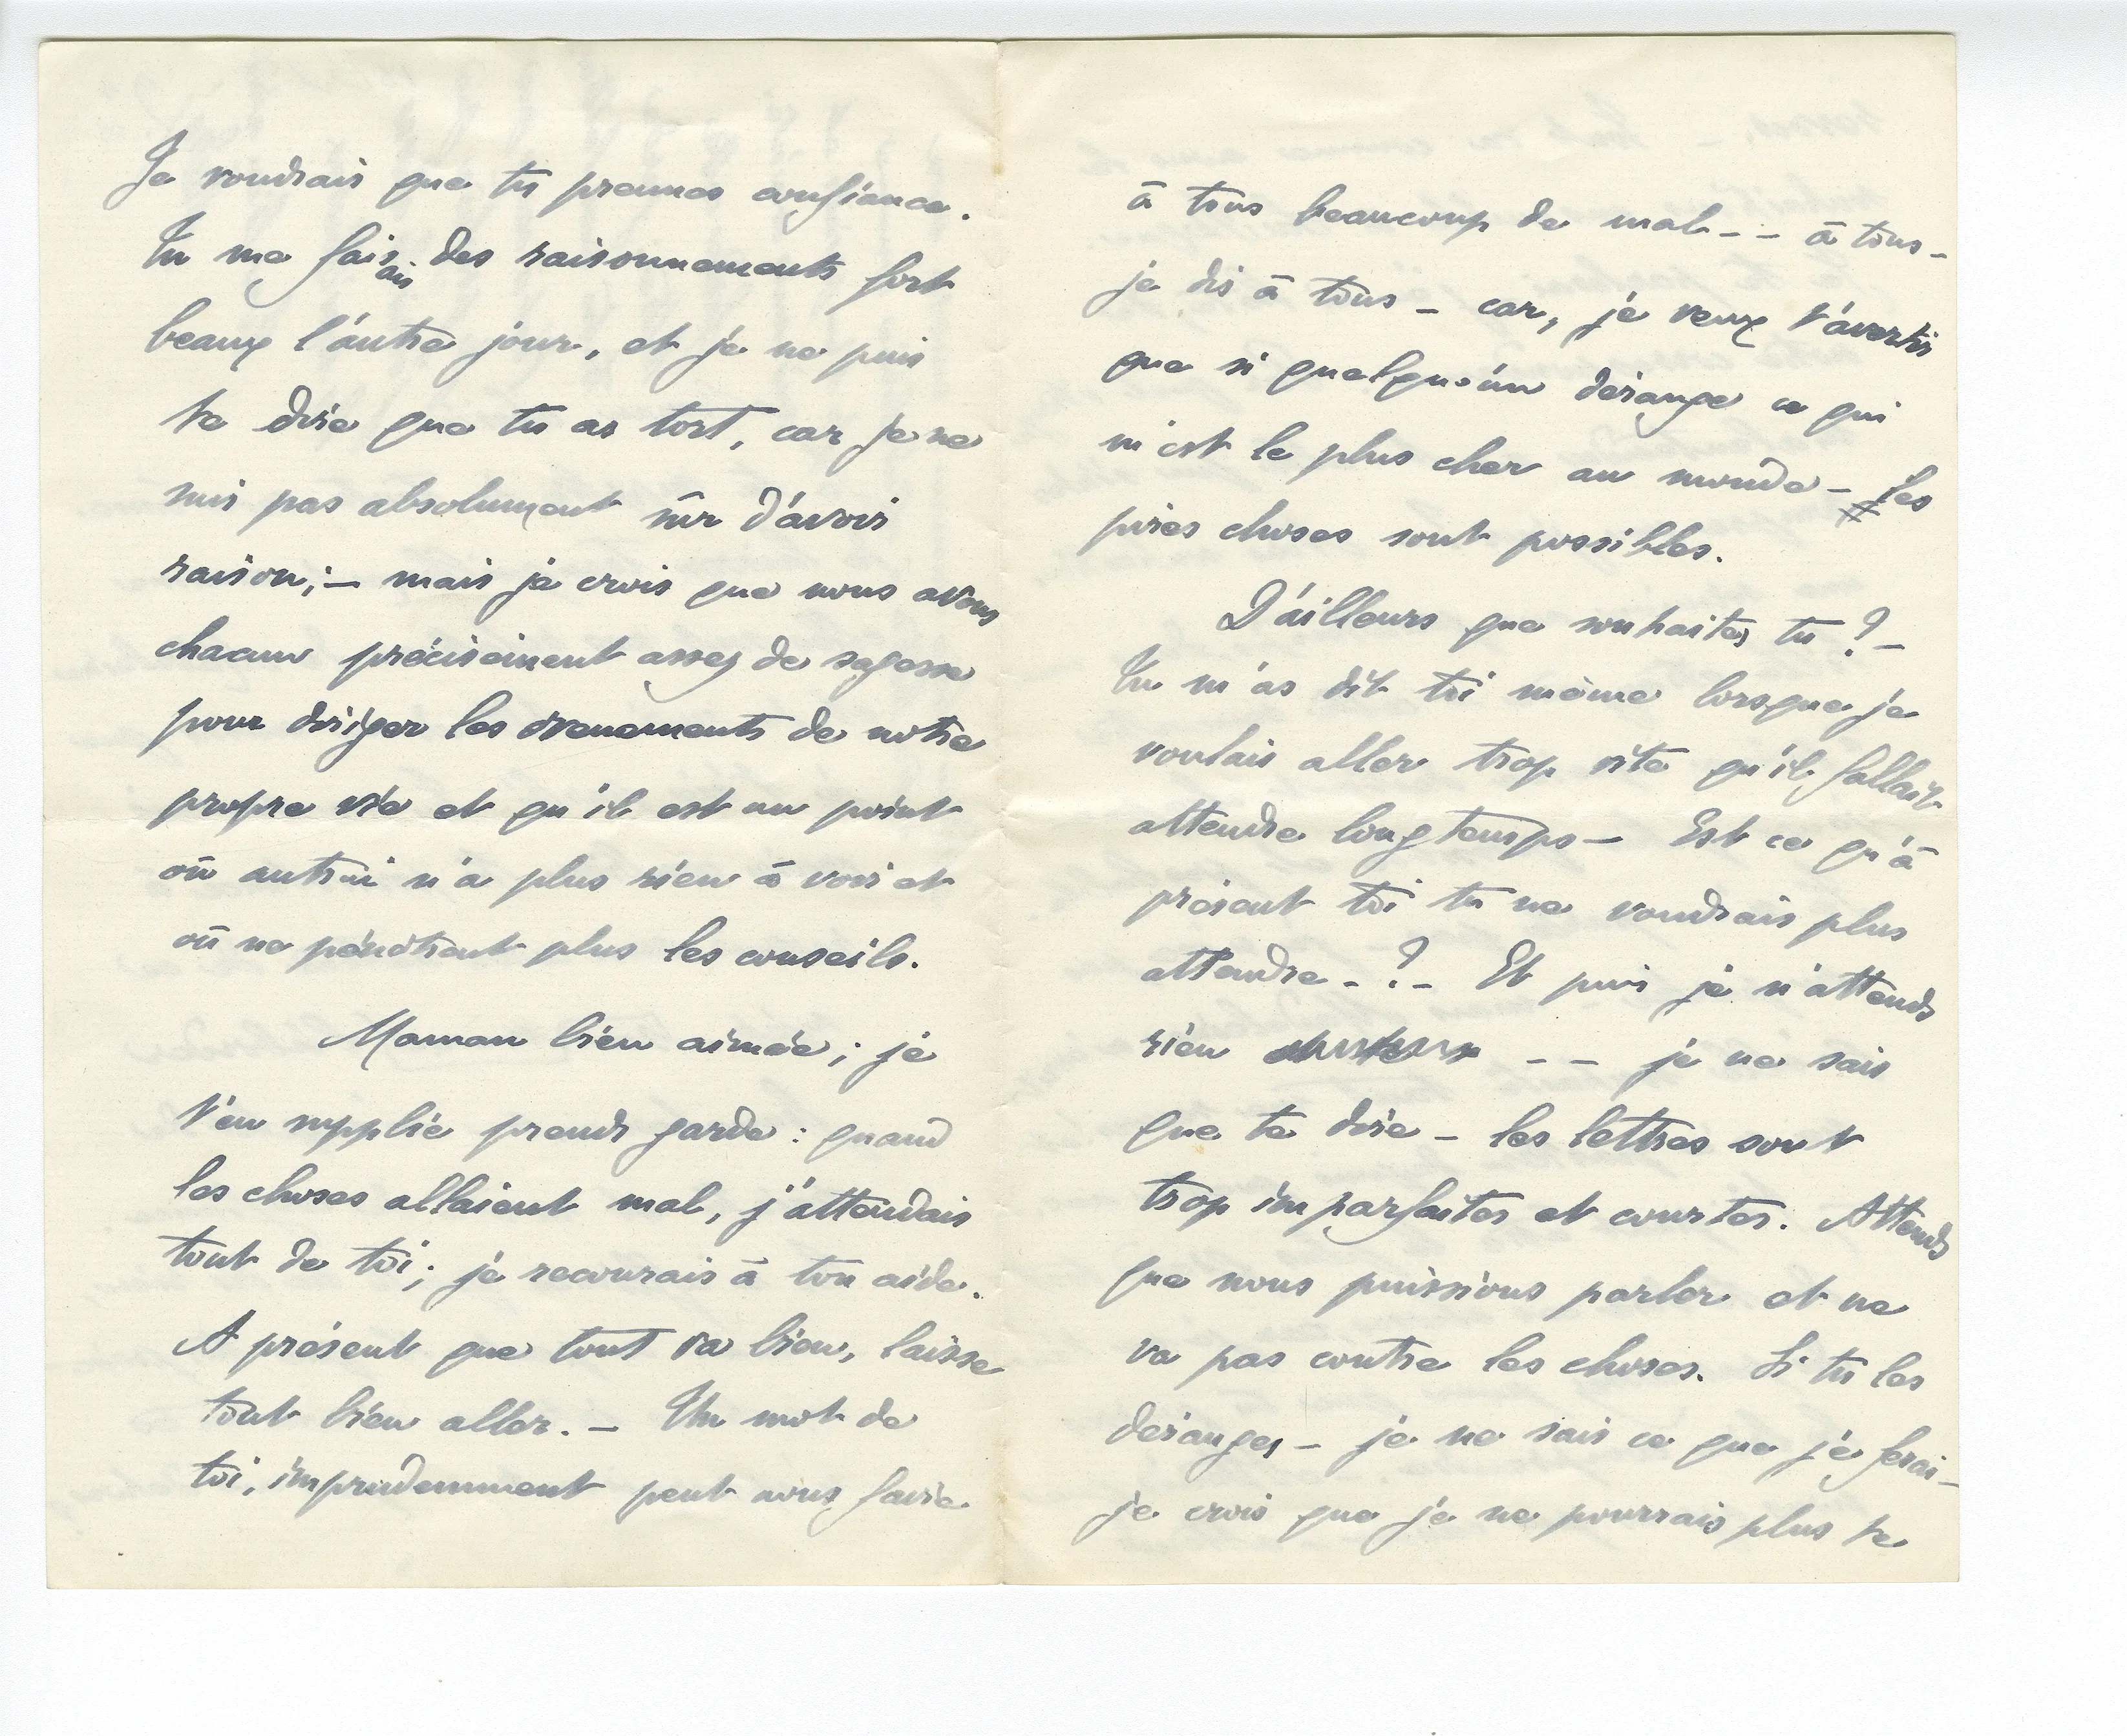 Je voudrais que tu prennes confiance.
Tu me faisais des raisonnements fort
beaux l'autre jour, et je ne puis
te dire que tu as tort, car je ne
suis pas absolument sûr d'avoir
raison; – mais je crois que nous avons
chacun précisément assez de sagesse
pour diriger les évenements de notre
propre vie et qu'il est un point
où autrui n'a plus rien à voir et
où ne pénètrent plus les conseils.
Maman bien aimée; je
t'en supplie prends garde: quand
les choses allaient mal, j'attendais
tout de toi; je recourais à ton aide.
A présent que tout va bien, laisse
tout bien aller. – Un mot de
toi, imprudemment peut nous faire
à tous beaucoup de mal – – à tous –
je dis à tous – car, je veux t'avertir
que si quelqu'un dérange ce qui
m'est le plus cher au monde – les
pires choses sont possibles.
D'ailleurs que souhaites tu? –
Tu m'as dit toi même lorsque je
voulais aller trop vite qu'il fallait
attendre longtemps – Est ce qu'à
présent toi tu ne voudrais plus
attendre – ? – Et puis je n'attends
rien – – je ne sais
que te dire – les lettres sont
trop imparfaites et courtes. Attends
que nous puissions parler et ne
va pas contre les choses. Si tu les
déranges – je ne sais ce que je ferai –
je crois que je ne pourrais plus te